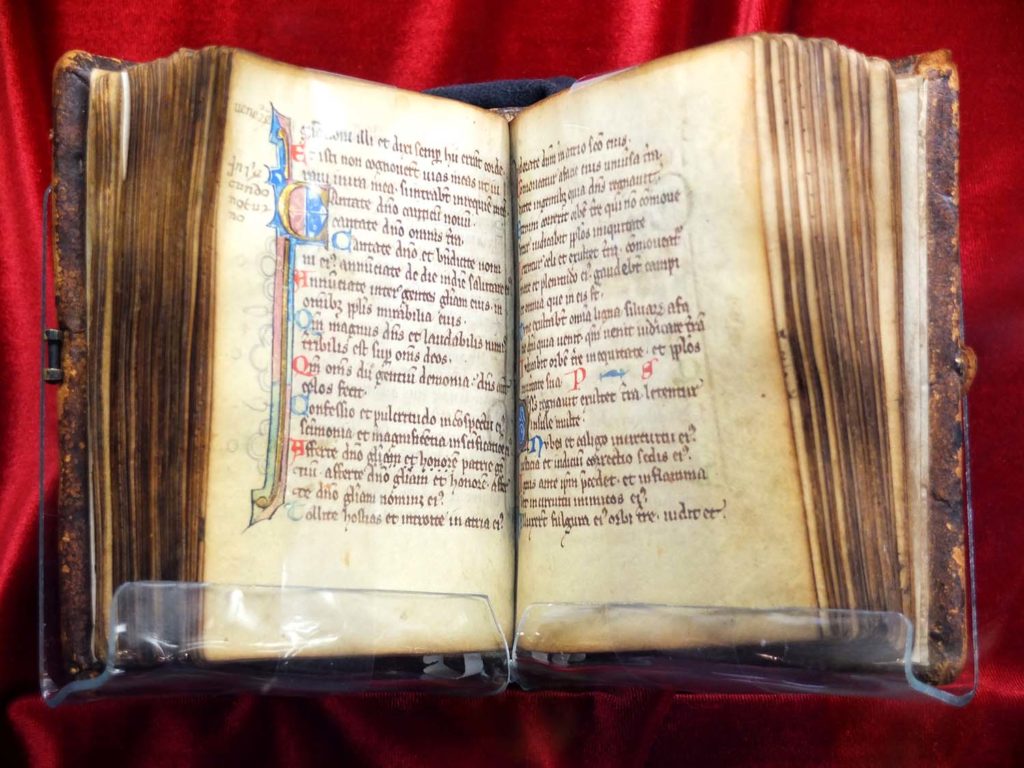 illi et dixi semp hii errāt corde
et isti non cognoverūt vias meas ut iu
ravi in ira mea si intrabūt in requiē meā
Cantate dño canticū novū
cantate dño omnis tra
Cantate dño et bñdicite nomi
ni eiꝰ annūciate de die indiē salutare
Annūciate inter gentes gliam eius in
omībꝫ pplis mirabilia eius
Qm magnus dñs et laudabilis nimis
tribilis est sup oms deos
Qm oms dii gentiū demonia dñs aut
celos fecit
Confessio et pulcritudo in cōspectu eiꝰ
scimonia et magnificēcia in scificatione
Afferte dño gliam et honorē patrie gē
tiū afferte dño gliam et honorē affer
te dño gliam nomini eiꝰ
Tollite hostias et introite in atria eiꝰ
dñm in atrio sco eius
cōmoveatur a facie eius universa tra
dicite in gentibꝫ quia dñs regnavit
correxit orbē tre qui nō comove
iudicabit pplos in equitate
celi et exultet tra comoveat
et plenitudo eiꝰ gaudebūt campi
et omnia que in eis st
exultabūt omīa ligna silvarꝫ a fa
dñi quia venit qm venit iudicare trā
iudicabit orbē tre in equitate et pplos
veritate sua P S
regnavit exultet tra letentur
insule multe
Nubes et caligo in circuitu eiꝰ
iusticia et iudiciū correctio sedis eiꝰ
ignis ante ipm pcedet et inflamma
bit in circuitu inimicos eiꝰ
illuxerūt fulgura eiꝰ orbi tre vidit et